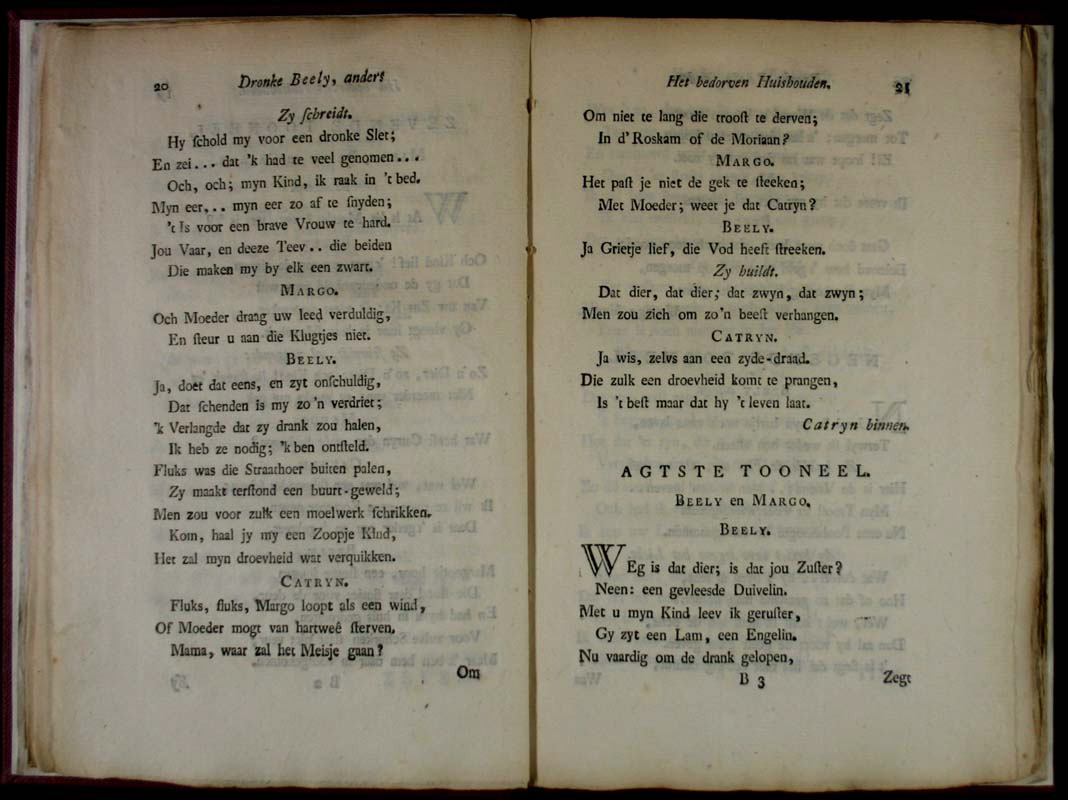 20 Dronke Beely, anders
Zy ſchreidt.
Hy ſchold my voor een dronke Slet;
En zei... dat 'k had te veel genomen...
Och, och; myn Kind, ik raak in 't bed.
Myn eer... myn eer zo af te ſnyden;
't Is voor een brave Vrouw te hard.
Jou Vaar, en deeze Teev.. die beiden
Die maken my by elk een zwart.
MARGO.
Och Moeder draag uw leed verduldig,
En ſteur u aan die Klugtjes niet.
BEELY.
Ja, doet dat eens, en zyt onſchuldig,
Dat ſchenden is my zo'n verdriet;
'k Verlangde dat zy drank zou halen,
Ik heb ze nodig; 'k ben ontſteld.
Fluks was die Straathoer buiten palen,
Zy maakt terſtond een buurt-geweld;
Men zou voor zulk een moelwerk ſchrikken.
Kom, haal jy my een Zoopje Kind,
Het zal myn droevheid wat verquikken.
CATRYN.
Fluks, fluks, Margo loopt als een wind,
Of Moeder mogt van hartweê ſterven.
Mama, waar zal het Meisje gaan?
Om
Het bedorven Huishouden. 21
Om niet te lang die trooſt te derven;
In d'Roskam of de Moriaan?
MARGO.
Het paſt je niet de gek te ſteeken;
Met Moeder; weet je dat Catryn?
BEELY.
Ja Grietje lief, die Vod heeft ſtreeken.
Zy huildt.
Dat dier, dat dier; dat zwyn, dat zwyn;
Men zou zich om zo'n beeſt verhangen.
CATRYN.
Ja wis, zelvs aan een zyde-draad.
Die zulk een droevheid komt te prangen,
Is 't beſt maar dat hy 't leven laat.
Catryn binnen.
AGTSTE TOONEEL.
BEELY en MARGO.
BEELY.
WEg is dat dier; is dat jou Zuſter?
Neen: een gevleesde Duivelin.
Met u myn Kind leev ik geruſter,
Gy zyt een Lam, een Engelin.
Nu vaardig om de drank gelopen,
B 3 Zegt